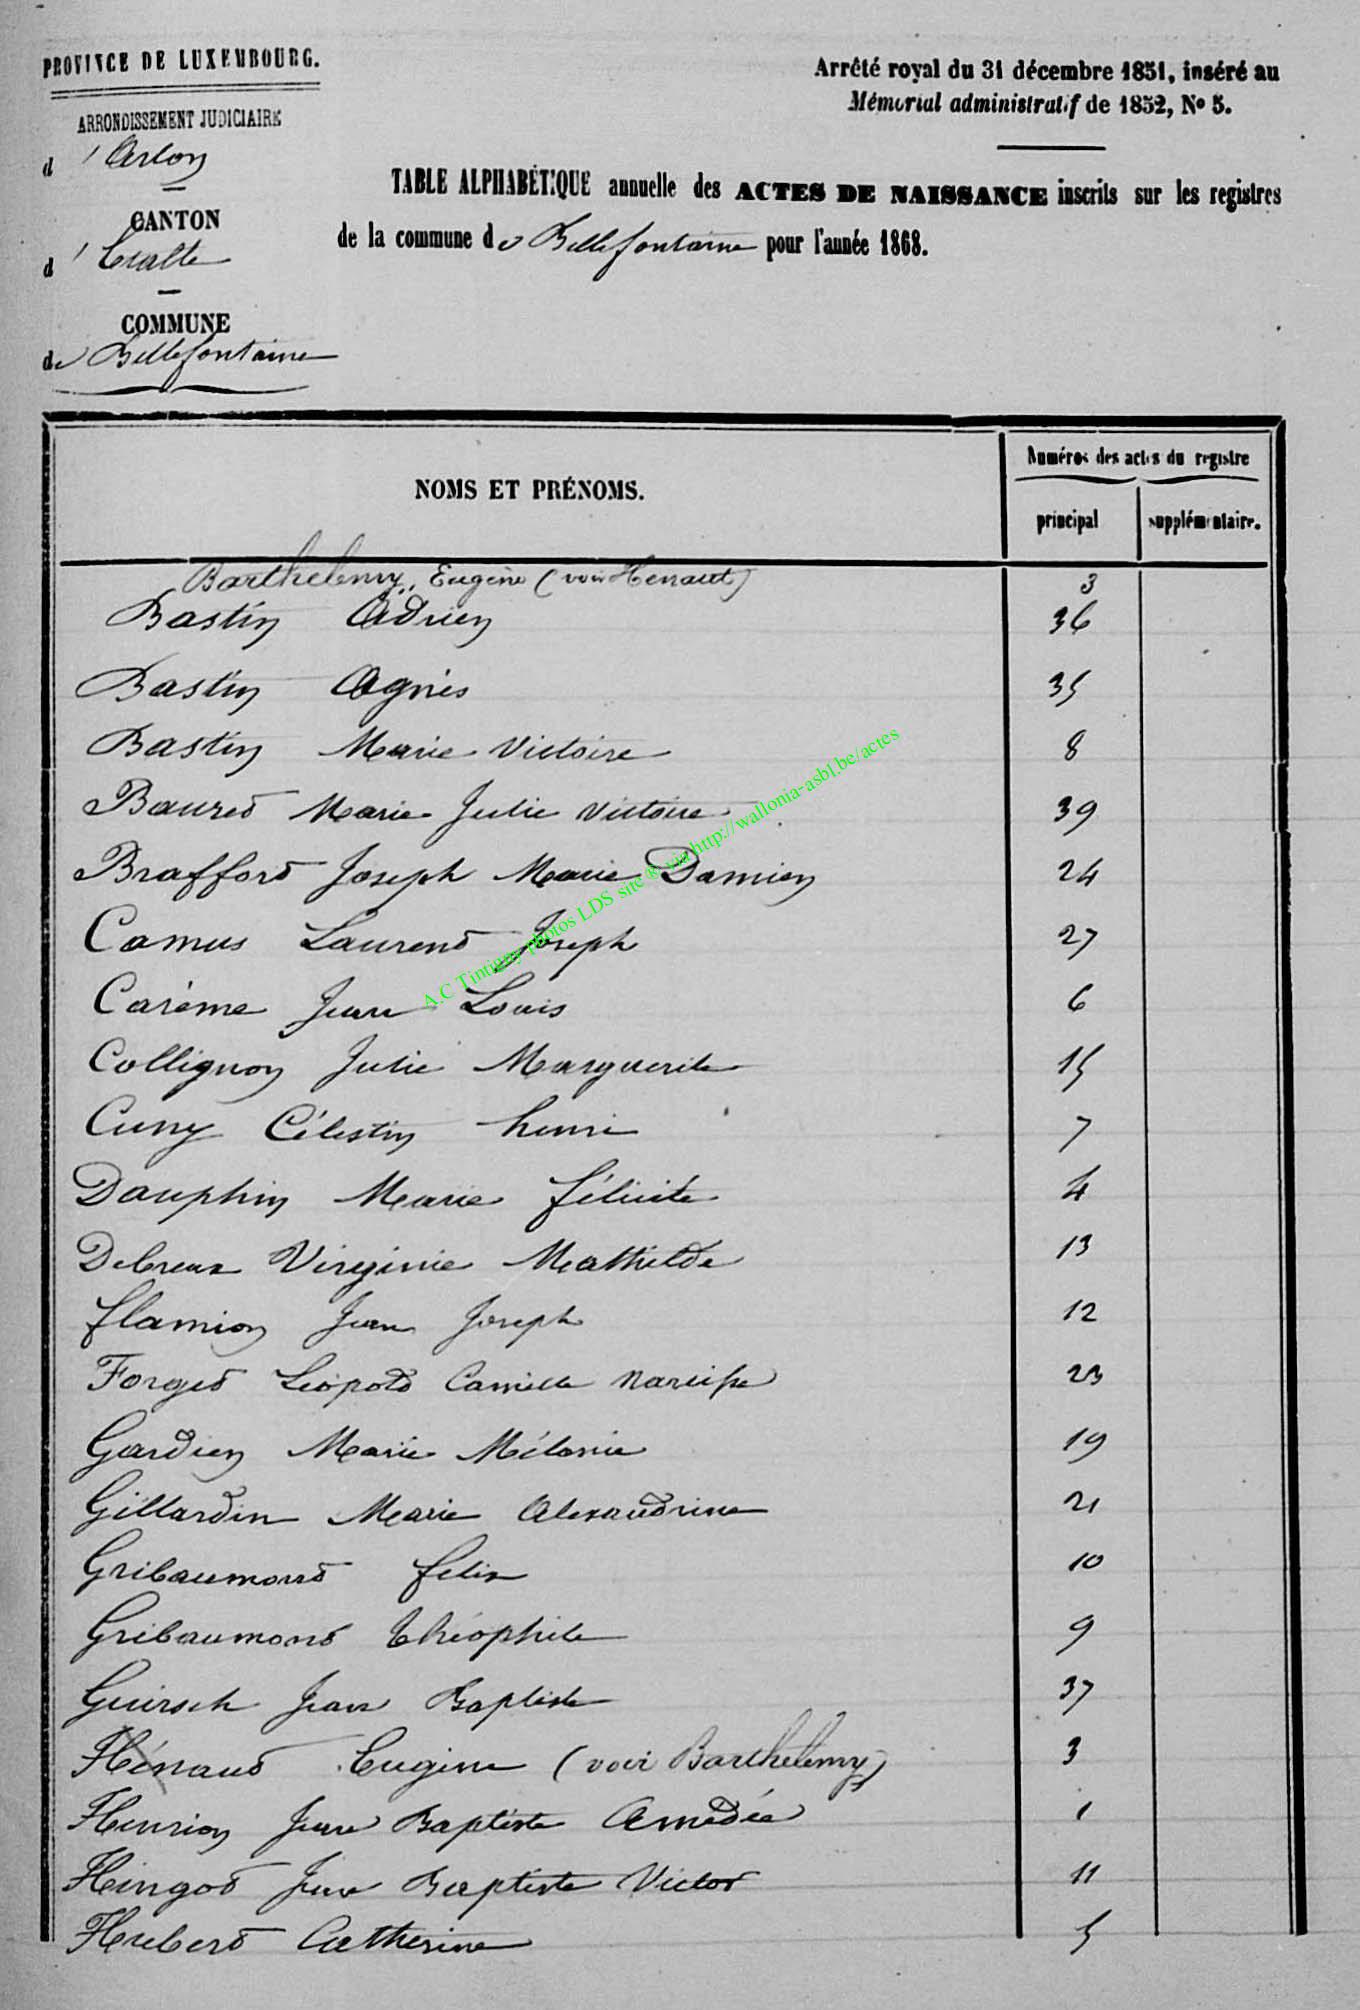 PROVINCE DE LUXEMBOURG.
Arrêté royal du 31 décembre 1851, inséré au
Mémorial administratif de 1852, No 5.
ARRONDISSEMENT JUDICIAIRE
d'Arlon
TABLE ALPHABÉTIQUE annuelle des ACTES DE NAISSANCE inscrits sur les registres
de la commune de Bellefontaine pour l'année 1868.
CANTON
d'Etalle
COMMUNE
de Bellefontaine
NOMS ET PRÉNOMS.
Numéros des actes du registre
principal supplémentaire.
Barthelemy, Eugène (voir Henaut) 3
Bastin Adrien 36
Bastin Agnès 35
Bastin Marie Victoire 8
Bauret Marie Julie Victoire 39
Braffort Joseph Marie Damien 24
Camus Laurent Joseph 27
Carème Jean Louis 6
Collignon Julie Marguerite 15
Cuny Célestin henri 7
Dauphin Marie félicité 4
Debreux Virginie Mathilde 13
flamion Jean Joseph 12
Forget Léopold Camille Narcisse 23
Gardien Marie Mélanie 19
Gillardin Marie Alexandrine 21
Gribaumont felix 10
Gribaumont théophile 9
Guirsch Jean Baptiste 37
Hénaut Eugène (voir Barthelemy) 3
Henrion Jean Baptiste Amédée 1
Hingot Jean Baptiste Victor 11
Hubert Catherine 5
A.C Tintigny photos LDS site & via http://wallonia-asbl.be/actes